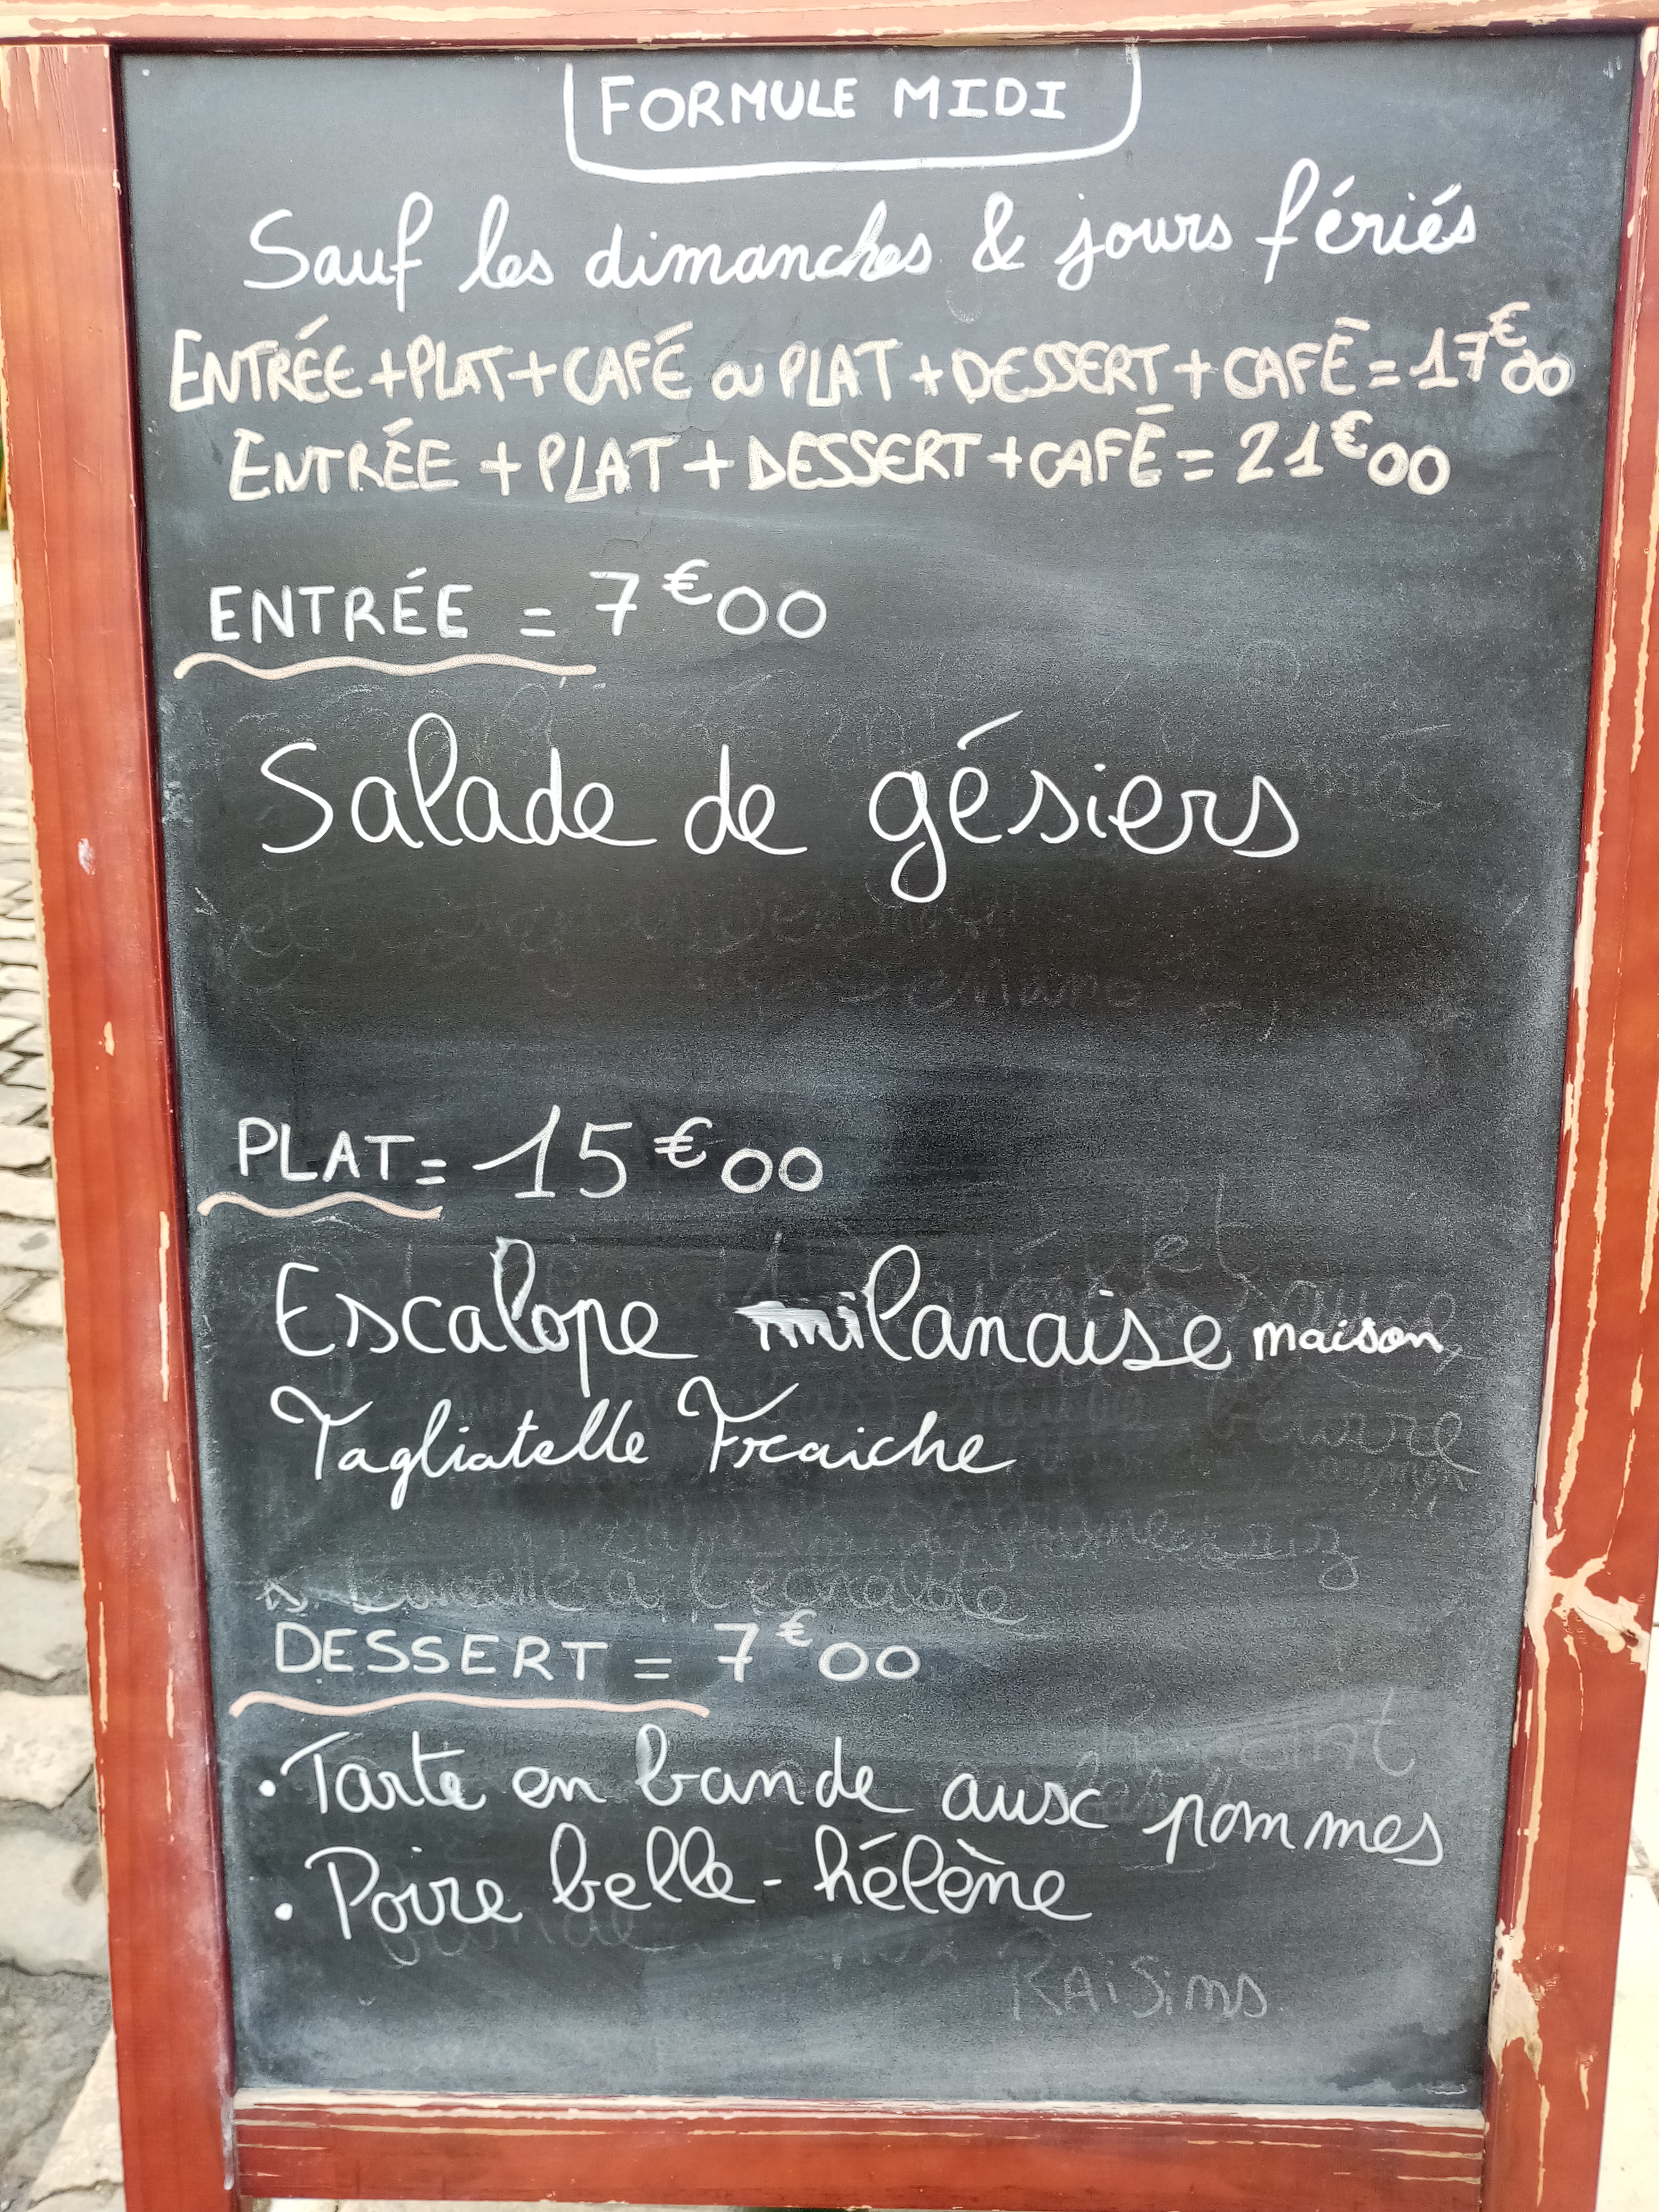 FORMULE MIDI
Sauf les dimanches & jours fériés
ENTRÉE +PLAT+CAFÉ ou PLAT +DESSERT+CAFÉ=17€00
ENTRÉE +PLAT+DESSERT+CAFÉ=21€00
ENTRÉE = 7€00
Salade de gésiers
PLAT= 15€00
Escalope milanaise maison
Tagliatelle Fraiche
DESSERT = 7€00
• Tarte en bande aux pommes
• Poire belle-hélène
RAISINS